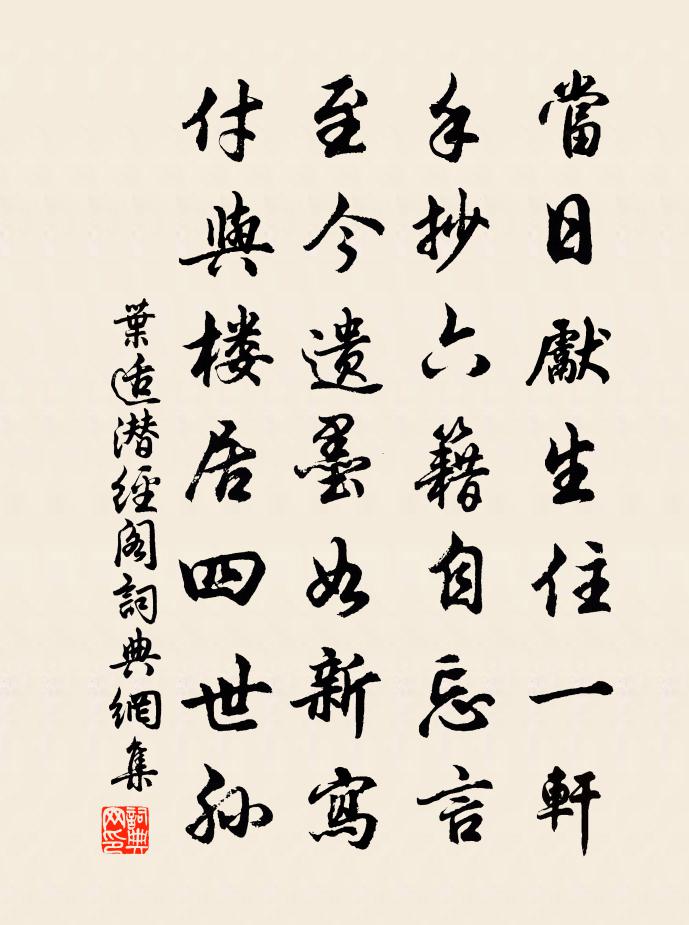 當日獻生住一軒
手抄六籍自忘言
至今遺墨如新寫
付與楼居四世孫
葉适潜經阁詞典網集
詞典网印